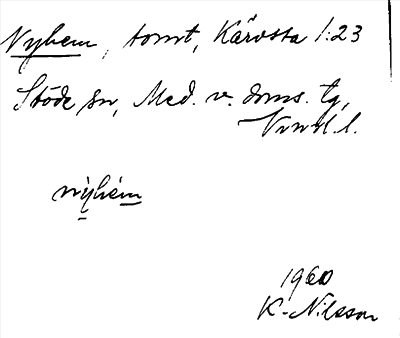 Nyhem, tomt, Kärvsta 1:23
Stöde sn, Med. v. doms. tg,
Vrnl. l.
nỳhém
1960
K-Nilsson